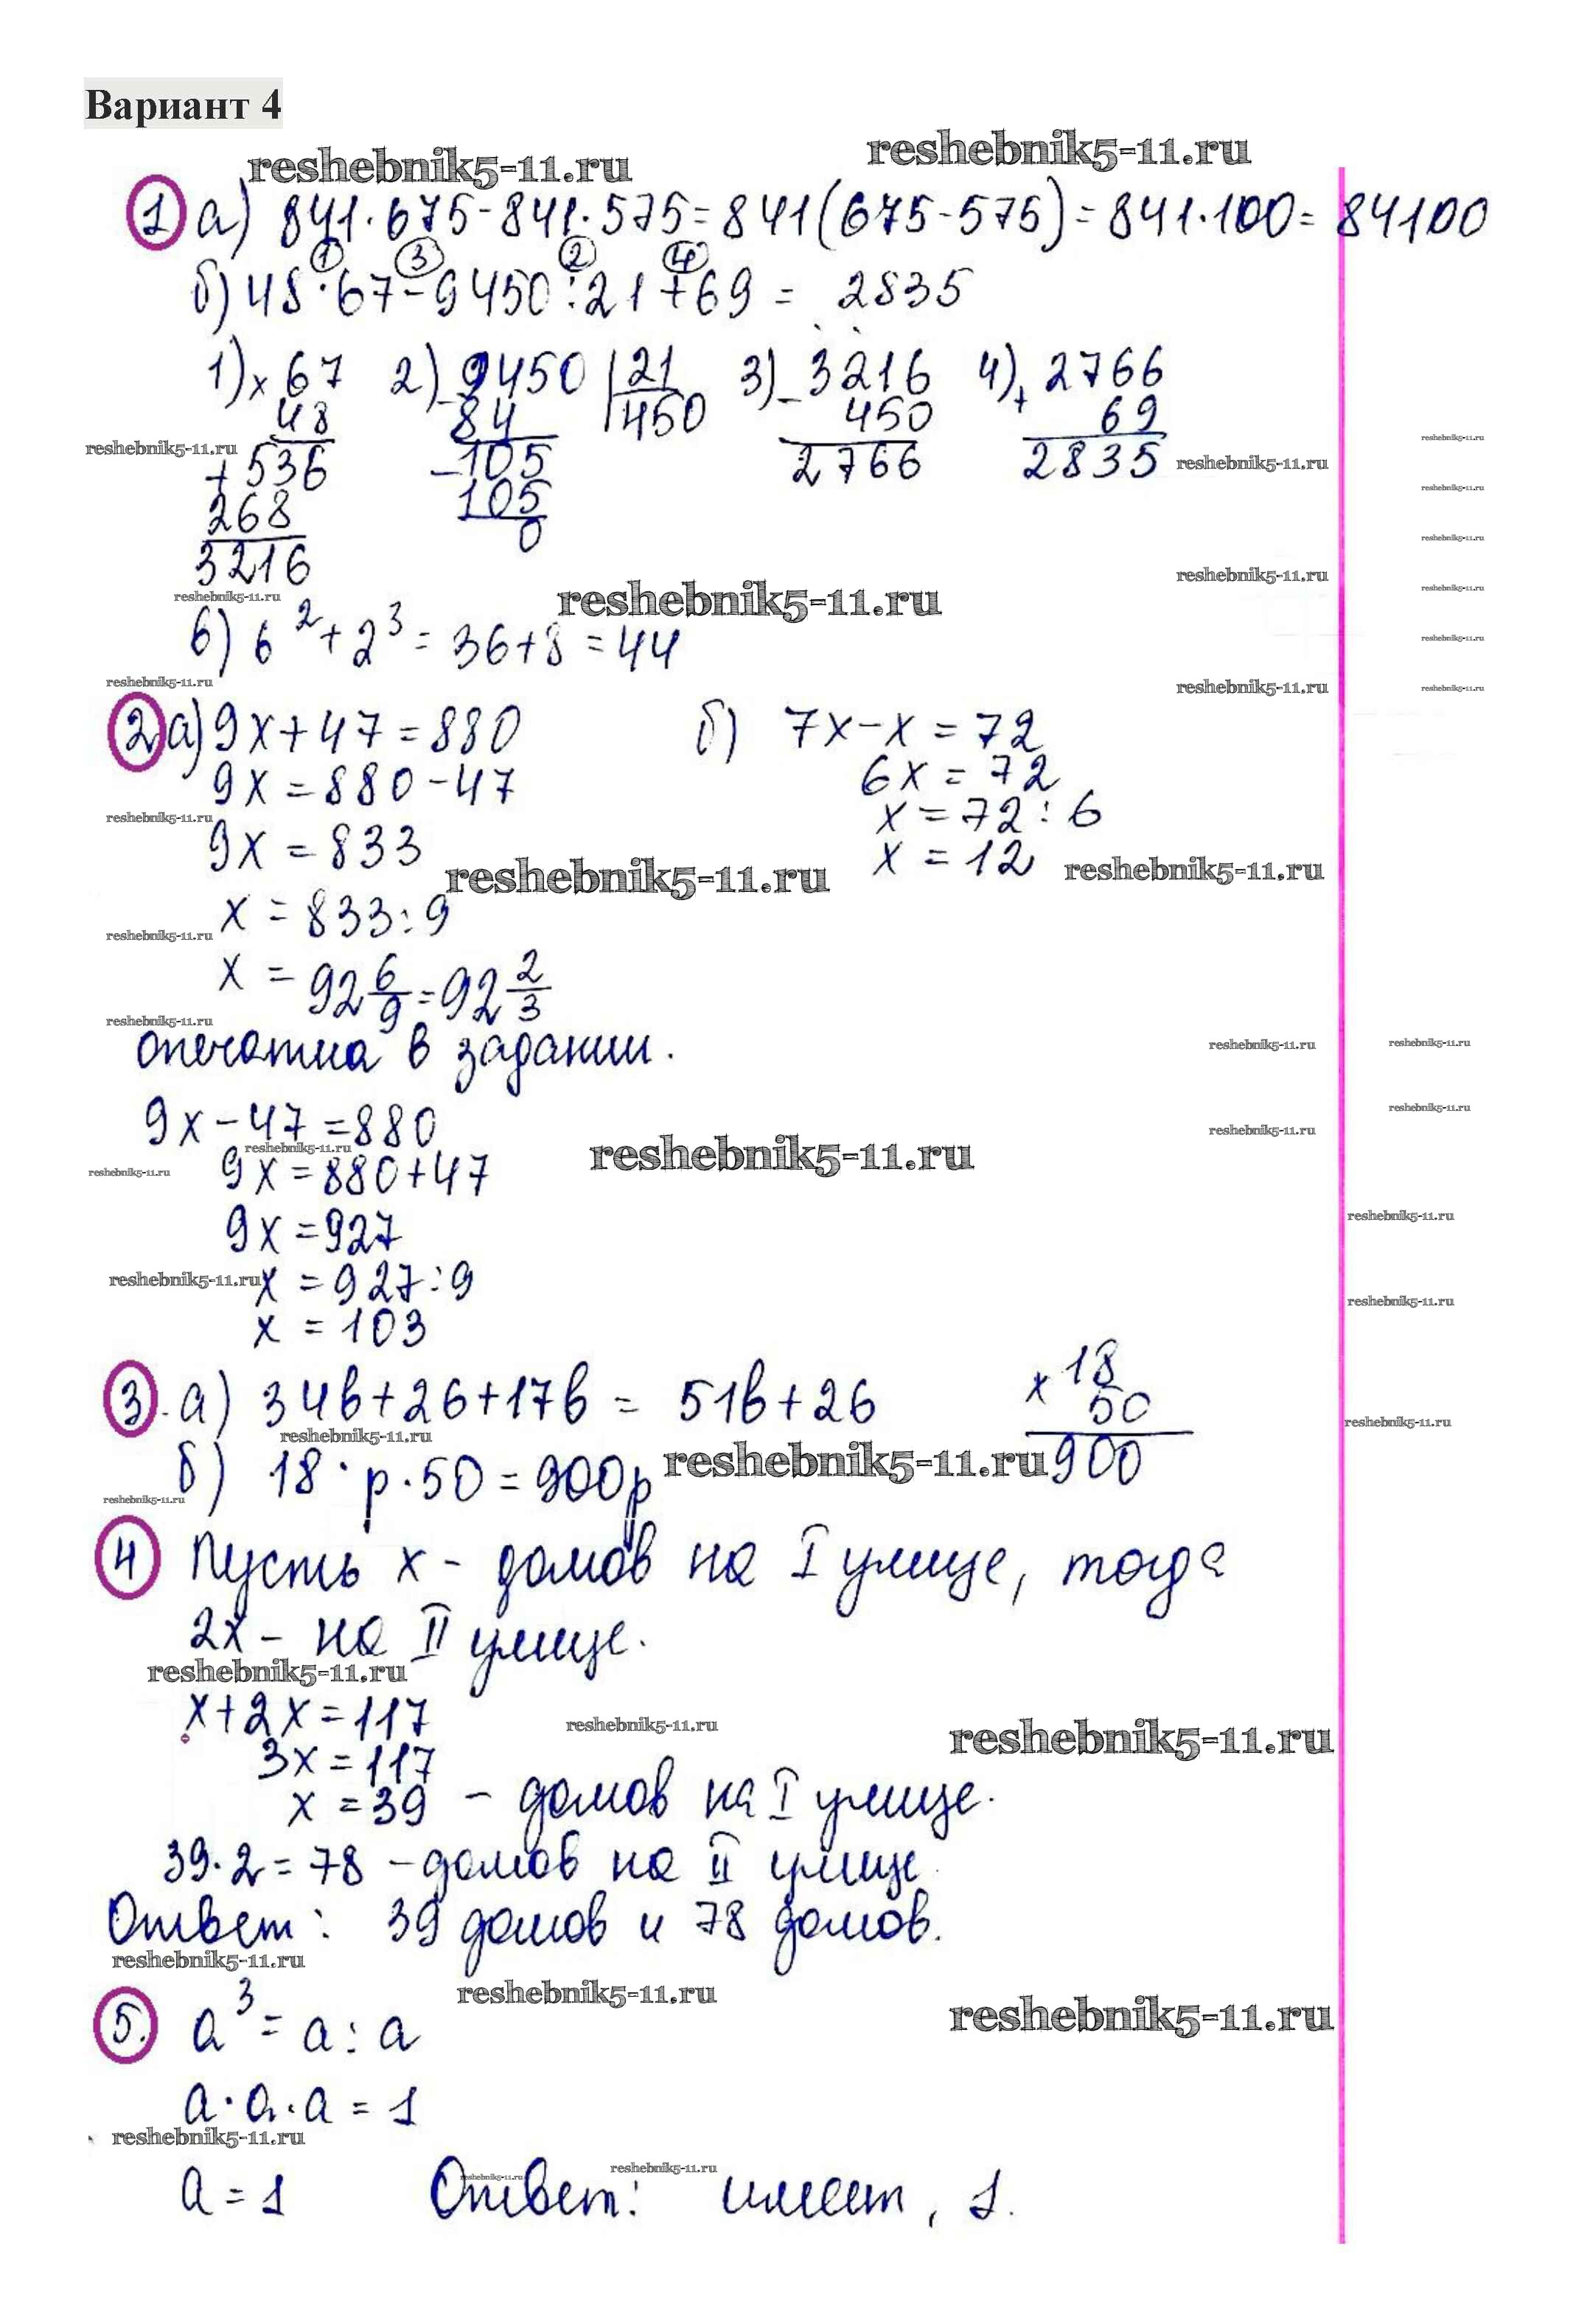 Вариант 4
reshebnik5-11.ru reshebnik5-11.ru
1 а) 841·675-841·575=841(675-575)=841·100=84100
1 3 2 4
б) 48·67-9450:21+69= 2835
1) × 67 2) - 9450 | 21 3) - 3216 4) + 2766
48 84 450 450 69
reshebnik5-11.ru + 536 - 105 2766 2835 reshebnik5-11.ru reshebnik5-11.ru
268 105 reshebnik5-11.ru
0 reshebnik5-11.ru
3216 reshebnik5-11.ru reshebnik5-11.ru
reshebnik5-11.ru reshebnik5-11.ru
в) 6² + 2³ = 36+8 = 44 reshebnik5-11.ru
reshebnik5-11.ru reshebnik5-11.ru reshebnik5-11.ru
2 а) 9x+47=880 б) 7x-x=72
9x=880-47 6x=72
reshebnik5-11.ru x=72:6
9x=833 x=12 reshebnik5-11.ru
reshebnik5-11.ru
x=833:9
reshebnik5-11.ru
x= 92 6/9 = 92 2/3
reshebnik5-11.ru
опечатка в задании. reshebnik5-11.ru reshebnik5-11.ru
9x-47=880 reshebnik5-11.ru reshebnik5-11.ru
reshebnik5-11.ru reshebnik5-11.ru
reshebnik5-11.ru 9x=880+47
9x=927 reshebnik5-11.ru
reshebnik5-11.ru x=927:9 reshebnik5-11.ru
x=103
3. а) 34b+26+17b= 51b+26 × 18
50
reshebnik5-11.ru reshebnik5-11.ru
б) 18·p·50=900p reshebnik5-11.ru 900
reshebnik5-11.ru
4 Пусть x - домов на I улице, тогда
2x - на II улице.
reshebnik5-11.ru
x+2x=117 reshebnik5-11.ru reshebnik5-11.ru
3x=117
x=39 - домов на I улице.
39·2=78 - домов на II улице.
Ответ: 39 домов и 78 домов.
reshebnik5-11.ru
reshebnik5-11.ru reshebnik5-11.ru
5. a³=a:a
a·a·a=1
reshebnik5-11.ru
reshebnik5-11.ru reshebnik5-11.ru
a=1 Ответ: имеет, 1.